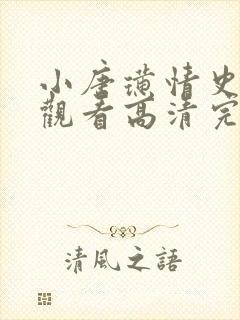 小唐璜情史
觀看高清完
清風之語